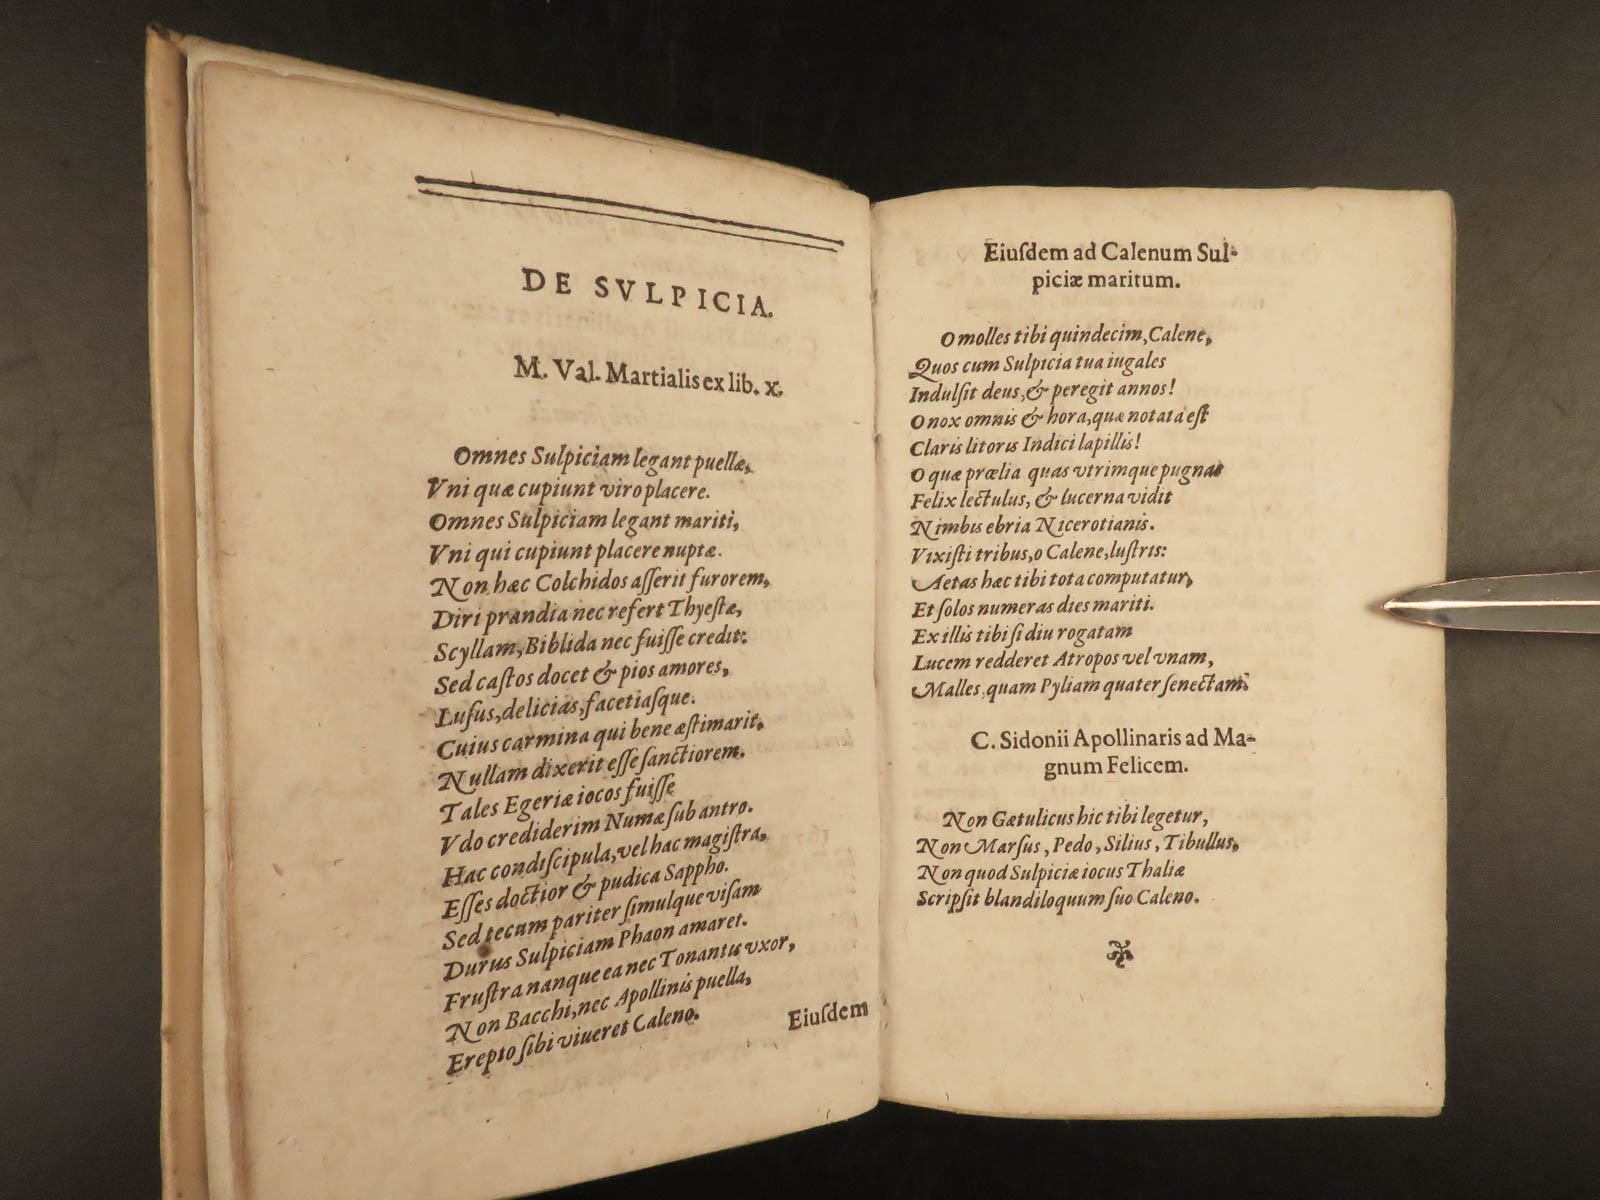 DE SVLPICIA.
M. Val. Martialis ex lib. x.
Omnes Sulpiciam legant puellæ,
Vni quæ cupiunt viro placere.
Omnes Sulpiciam legant mariti,
Vni qui cupiunt placere nuptæ.
Non hæc Colchidos aſſerit furorem,
Diri prandia nec refert Thyeſtæ,
Scyllam, Biblida nec fuiſſe credit:
Sed caſtos docet & pios amores,
Luſus, delicias, facetiaſque.
Cuius carmina qui bene æſtimarit,
Nullam dixerit eſſe ſanctiorem.
Tales Egeriæ iocos fuiſſe
Vdo crediderim Numæ ſub antro.
Hac condiſcipula, vel hac magiſtra,
Eſſes doctior & pudica Sappho.
Sed tecum pariter ſimulque viſam
Durus Sulpiciam Phaon amaret.
Fruſtra nanque ea nec Tonantis vxor,
Non Bacchi, nec Apollinis puella,
Erepto ſibi viueret Caleno.
Eiuſdem
Eiuſdem ad Calenum Sul-
piciæ maritum.
O molles tibi quindecim, Calene,
Quos cum Sulpicia tua iugales
Indulſit deus, & peregit annos!
O nox omnis & hora, quæ notata eſt
Claris litoris Indici lapillis!
O quæ prœlia quas vtrimque pugnas
Felix lectulus, & lucerna vidit
Nimbis ebria Nicerotianis.
Vixiſti tribus, o Calene, luſtris:
Aetas hæc tibi tota computatur,
Et ſolos numeras dies mariti.
Ex illis tibi ſi diu rogatam
Lucem redderet Atropos vel vnam,
Malles, quam Pyliam quater ſenectam.
C. Sidonii Apollinaris ad Ma-
gnum Felicem.
Non Gætulicus hic tibi legetur,
Non Marſus, Pedo, Silius, Tibullus,
Non quod Sulpiciæ iocus Thaliæ
Scripſit blandiloquum ſuo Caleno.